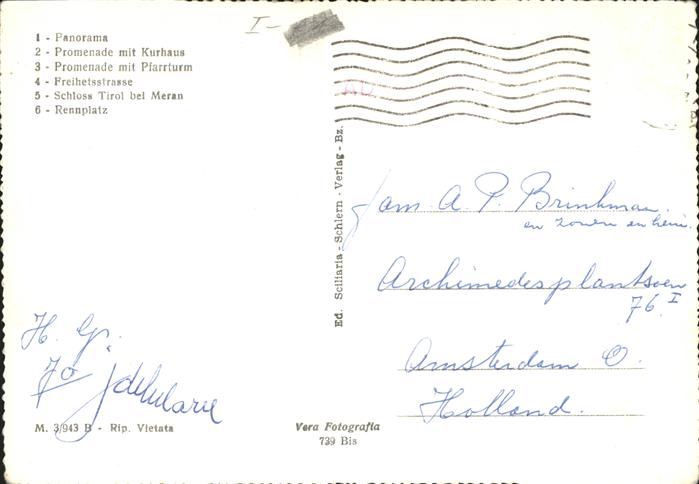 I -
1 - Panorama
2 - Promenade mit Kurhaus
3 - Promenade mit Pfarrturm
4 - Freihetsstrasse
5 - Schloss Tirol bei Meran
6 - Rennplatz
Ed. Sciliaria - Schlern - Verlag - Bz.
Fam. A. P. Brinkman
en zonen en
Archimedesplantsoen
76 I
Amsterdam O.
Holland.
H. Gr.
Jo
M. 3/943 B - Rip. Vietata
Vera Fotografia
739 Bis